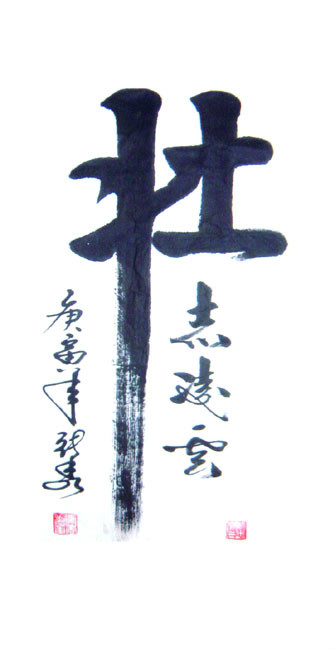 壮
志凌雲
庚寅年